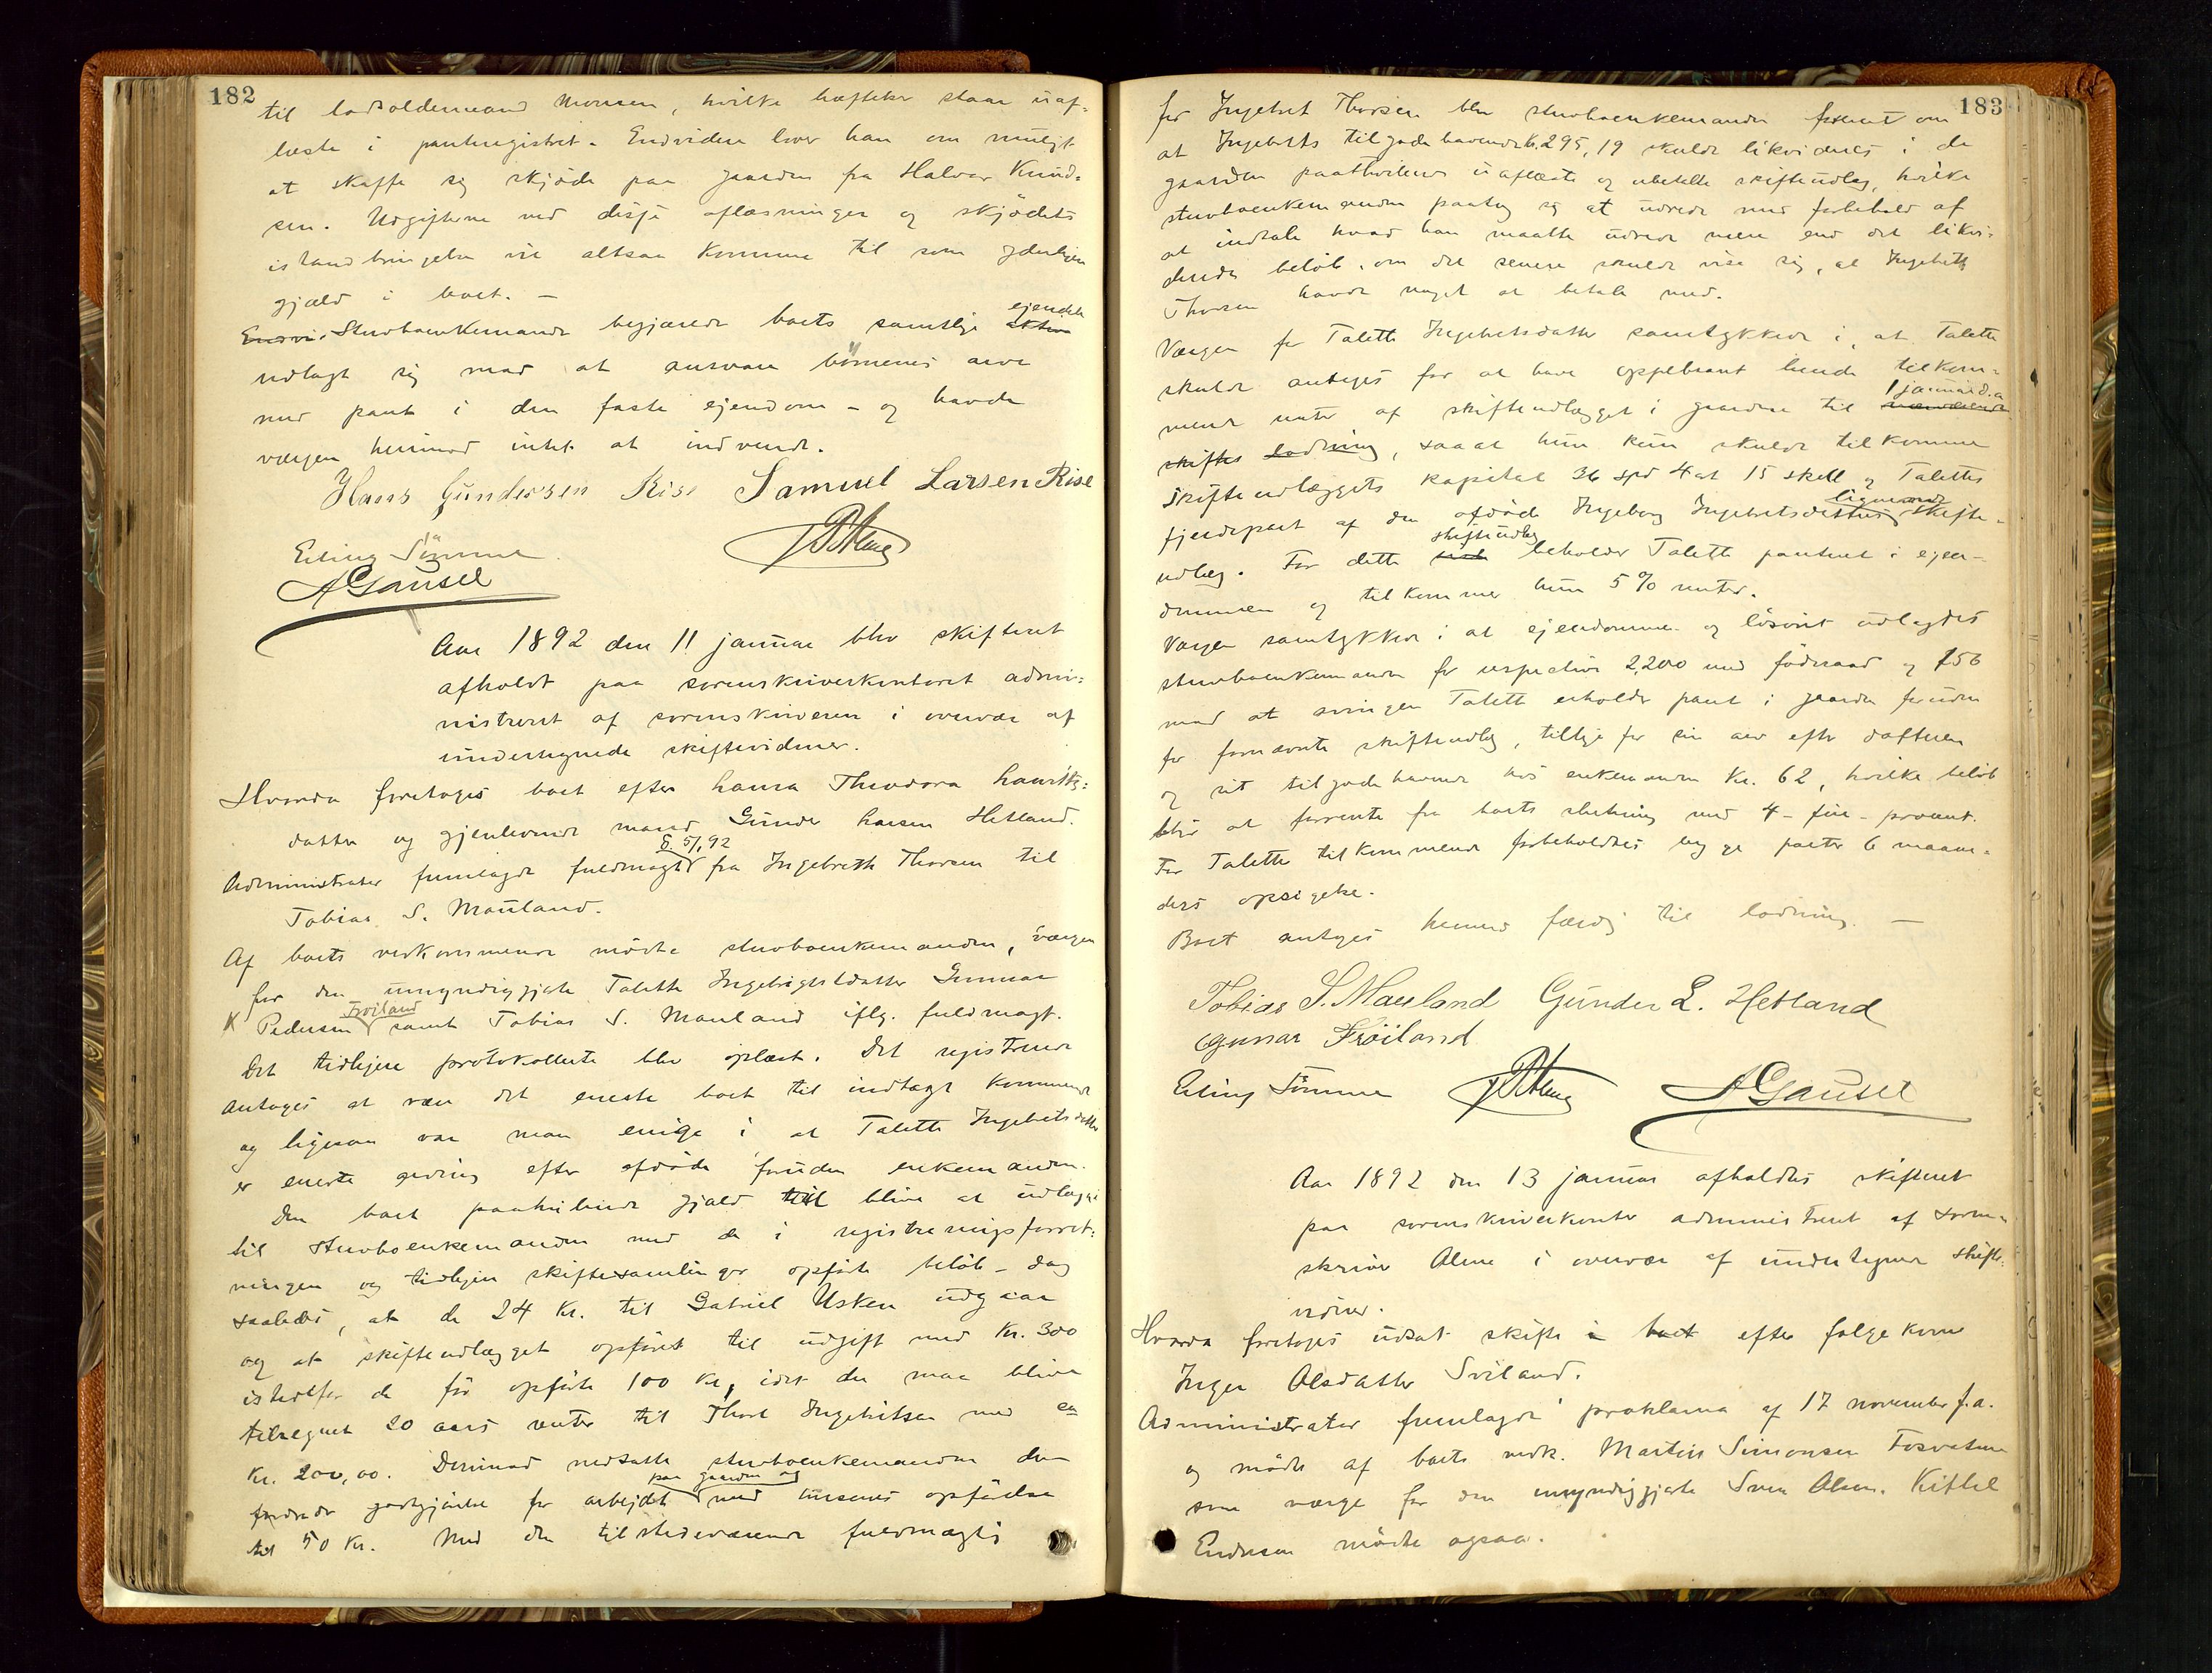 182
til lodsoldermand Monsen, hvilke hæftelser staar uaf-
læste i panteregistret. Endvidere lover han om muligt
at skaffe sig skjöde paa gaarden fra Halvor Knud-
sen. Udgifterne ved disse aflæsninger og skjödets
istandbringelse vil altsaa komme til som yderligere
gjæld i boet. —
ejendele
Stervboenkemanden begjærede boets samtlige aktiva
udlagt sig mod at ansvare börnenes arv
med pant i den faste ejendom – og havde
værgen herimod intet at indvende.
Hans Gundersen Rise Samuel Larsen Rise
Erling Sömme
A Gausel
Aar 1892 den 11 januar blev skifteret
afholdt paa sorenskriverkontoret admi-
nistreret af sorenskriveren i overvær af
undertegnede skiftevidner.
Hvorda foretoges boet efter Laura Theodora Lauritz-
datter og gjenlevende mand Gunder Larsen Hetland.
d. 5/1 92
Administrator fremlagde fuldmagt fra Ingebreth Thorsen til
Tobias S. Mauland.
Af boets vedkommende mödte stervboenkemanden, værgen
for den umyndiggjorte Talette Ingebrigtsdatter Gunnar
Fröiland
K Pedersen samt Tobias S. Mauland iflg. fuldmagt.
Det tidligere protokollerte blev oplæst. Det registrerede
antoges at være det eneste boet til indtægt kommende
og ligesom var man enige i at Talette Ingebretsdatter
er eneste arving efter afdöde foruden enkemanden.
Den boet paahvilende gjæld til blive at udlægge
til stervboenkemanden med de i registreringsforret-
ningen og tidligere skiftesamlinger opförte belöb – dog
saaledes, at de 24 Kr. til Gabriel Usken udgaar
og at skifteudlægget opföres til udgift med Kr. 300
istedetfor de för opförte 100 Kr, idet der maa blive
tilregnet 20 aars renter til Thore Ingebretsen med ca
Kr. 200,00. Derimod nedsatte stervboenkemanden den
paa gaarden og
fordrede godtgjörelse for arbejdet med opfödelse
til 50 Kr. Med den tilstedeværende fuldmægtig
183
for Ingebret Thorsen blev stervboenkemanden forenet om
at Ingebrets tilgodehavende k. 295,19 skulde likvideres i de
gaarden paahvilende uaflæste og ubetalte skifteudlæg, hvilke
stervboenkemanden paatog sig at udrede med forbehold af
at indtale hvad han maatte udrede mere end det likvi-
derede belöb, om det senere skulde vise sig, at Ingebreth
Thorsen havde noget at betale med.
Værgen for Talette Ingebretsdatter samtykkede i, at Talette
skulde antages for at have oppebaaret hende tilkom-
1 januar d.a.
mende renter af skifteudlægget i gaarden til
skiftes lodning, saa at hun kun skulde tilkomme
skifteudlæggets kapital 36 spd 4 ort 15 skill og Talettes
lignende
fjerdepart af den afdöde Ingeborg Ingebretsdatters skifte-
skifteudlæg
udlæg. For dette beholder Talette panteret i ejen-
dommen og tilkommer hun 5 % renter.
Værgen samtykkede i at ejendommen og lösöret udlagdes
stervboenkemanden for respektive 2,200 med föderaad og 756
mod at arvingen Talette erholder pant i gaarden foruden
for fornævnte skifteudlæg, tillige for sin arv efter datteren
og sit tilgodehavende hos enkemanden Kr. 62, hvilke belöb
blir at forrente fra boets slutning med 4 - fire - procent.
For Talettes tilkommende forbeholdtes begge parter 6 maane-
ders opsigelse.
Boet antoges hermed færdig til lodning. —
Tobias S. Mauland Gunder L. Hetland
Gunnar Fröiland
Erling Sömme A Gausel
Aar 1892 den 13 januar afholdtes skifteret
paa sorenskriverkontor administreret af soren-
skriver Alme i overvær af undertegnede skifte-
vidner.
Hvorda foretoges udsat skifte i boet efter folgekone
Inger Olsdatter Sviland.
Administrator fremlagde proklama af 17 november f.a.
og mödte af boets vedk. Martin Simonsen Fosvatne
som værge for den umyndiggjorte Sven Olsen. Kittel
Endresen mödte ogsaa.